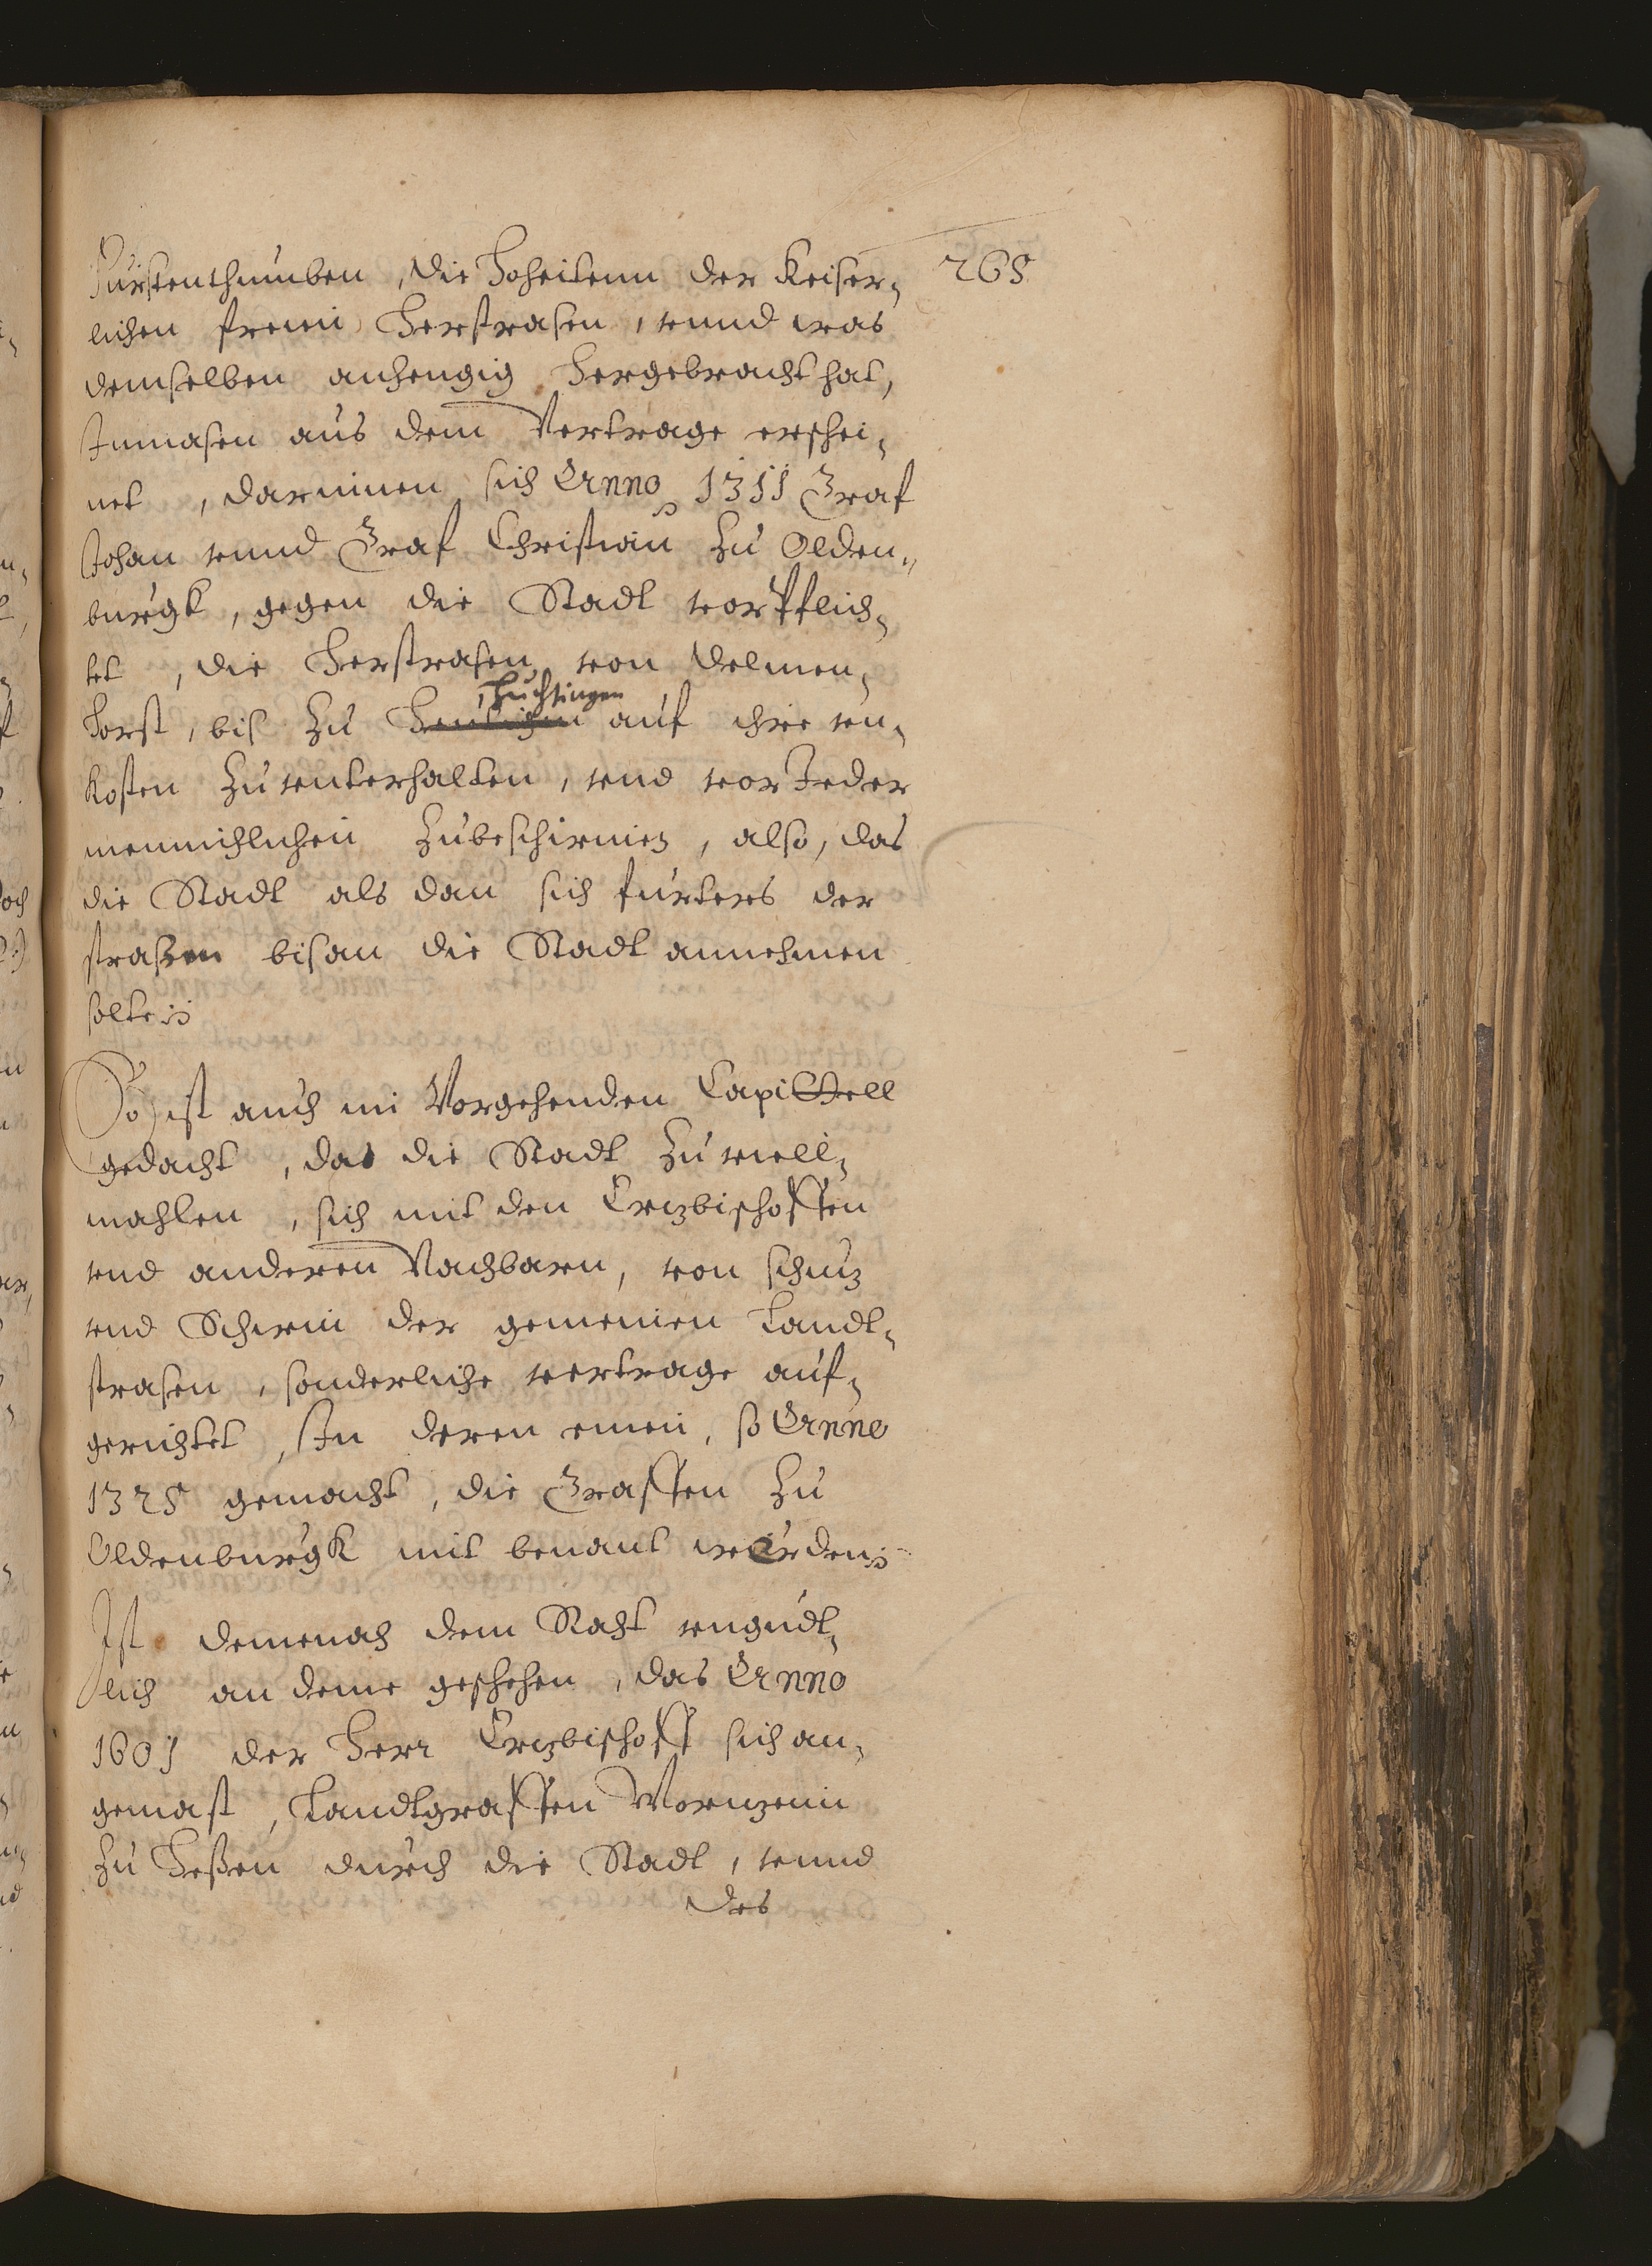 Furstenthumben, die Hoheitenn der Keiser¬ 268
lichen freien Herstrasen, vnnd was
demselben anhengig hergebracht hat,
Inmasen aus dem Vertrage erschei¬
net, darinnen sich Anno 1311 Graf
Johan vnnd Graf Christian zu Olden¬
burgk, gegen die Stadt vorpflich¬
tet, die Herstrasen von Delmen¬
Huchtingen
horst, bis zu auf ihre vn¬
kosten zu vnterhalten, vnd vor Jeder
menniglichen zubeschirmen, also, das
die Stadt als dan sich furters der
straßen bis an die Stadt annehmen
solte
So ist auch im Vorgehenden Capittell
gedacht, das die Stadt zu viell¬
mahlen, sich mit den Erzbischoffen
vnd anderen Nachbaren, von schutz
vnd Schirm der gemeinen Landt¬
strasen, sonderliche vertrage auf¬
gerichtet, In deren einen, so Anno
1325 gemacht, die Graffen zu
Oldenburgk mit benant werden
Ist demenach dem Raht vngudt¬
lich an deme geschehen, das Anno
1601 der Herr Erzbischoff sich an¬
gemast, Landtgraffen Moritzenn
zu Heßen durch die Stadt, vnnd
des